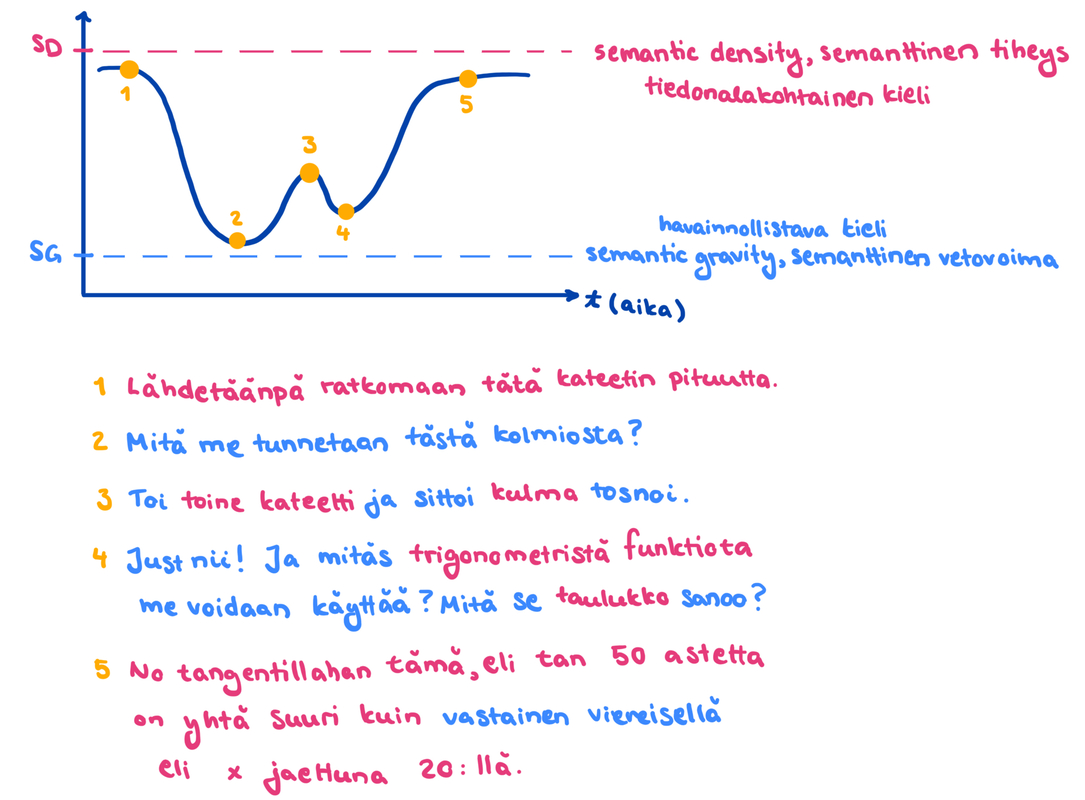 SD
semantic density, semanttinen tiheys
tiedonalakohtainen kieli
1
2
3
4
5
havainnollistava kieli
SG
semantic gravity, semanttinen vetovoima
t (aika)
1 Lähdetäänpä ratkomaan tätä kateetin pituutta.
2 Mitä me tunnetaan tästä kolmiosta?
3 Toi toine kateetti ja sittoi kulma tosnoi.
4 Just nii! Ja mitäs trigonometristä funktiota
me voidaan käyttää? Mitä se taulukko sanoo?
5 No tangentillahan tämä, eli tan 50 astetta
on yhtä suuri kuin vastainen viereisellä
eli x jaettuna 20:llä.